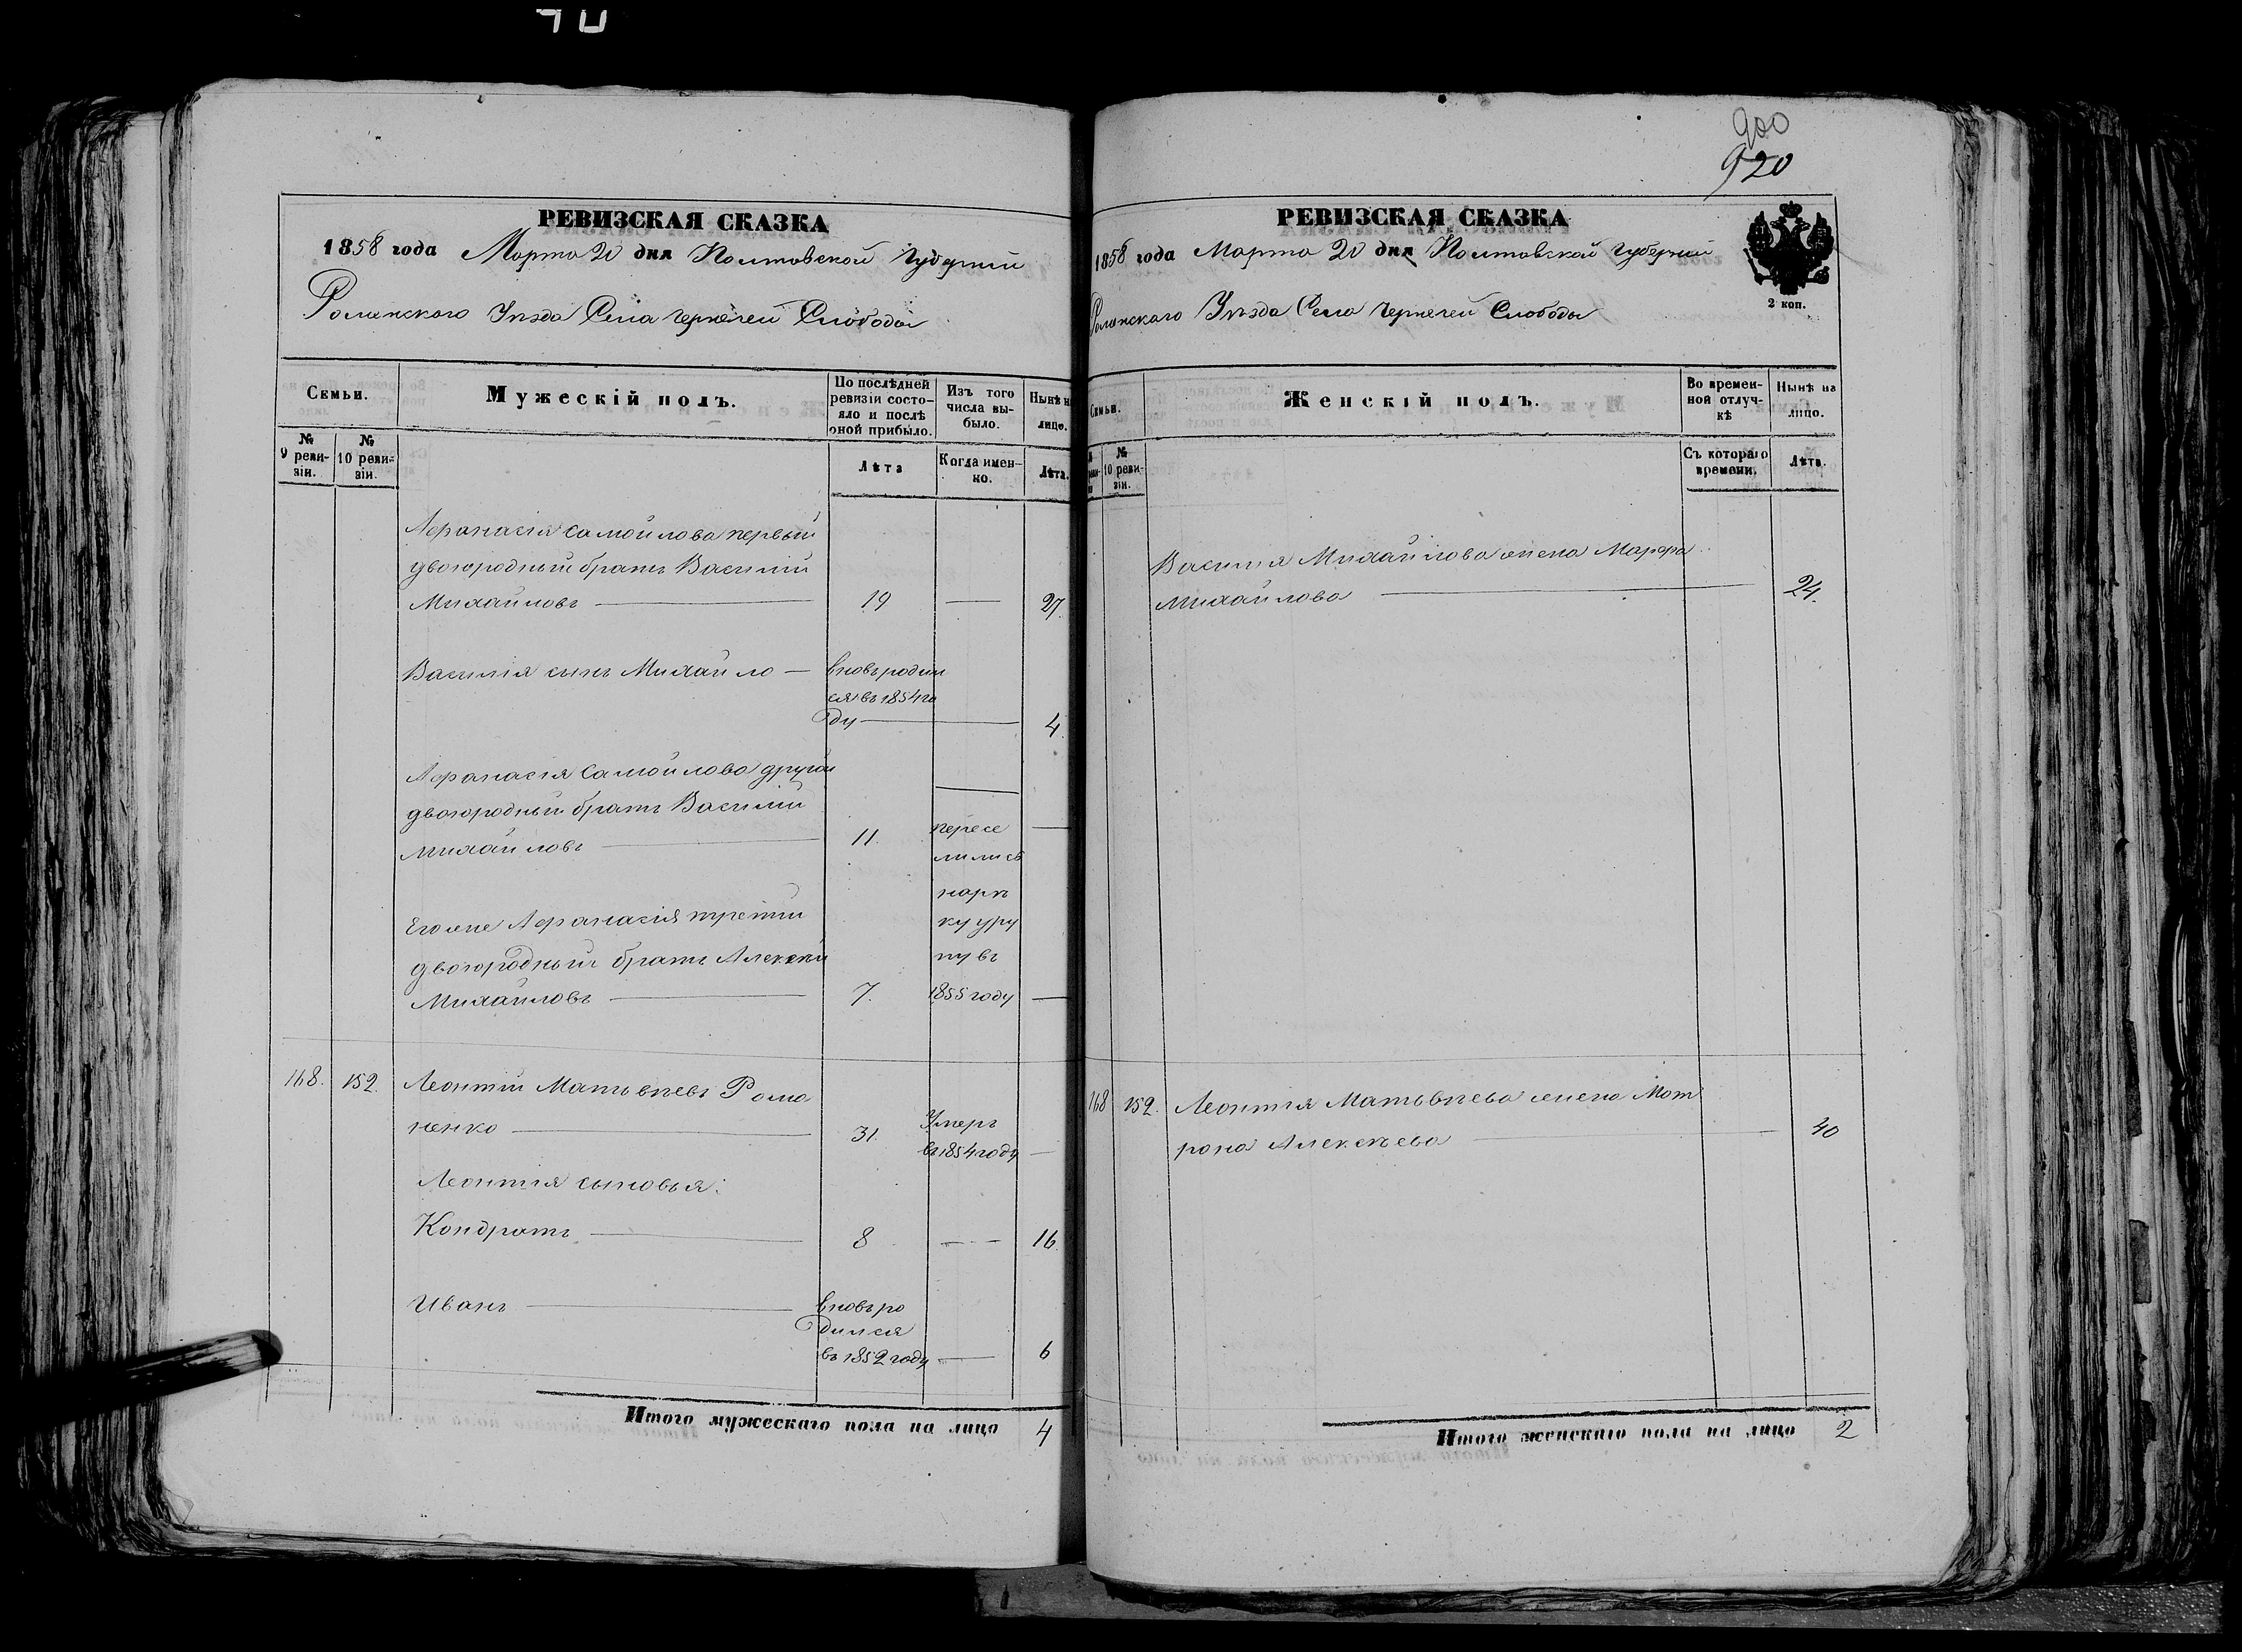 900
920
РЕВИЗСКАЯ СКАЗКА
1858 года Марта 20 дня Полтавской Губернии
Роменского Уѣзда Села Чернечей Слободы
Семьи.
Мужескій полъ.
По послѣдней ревизіи состояло и послѣ оной прибыло.
Изъ того числа выбыло.
Нынѣ на лицо.
№ 9 ревизіи.
№ 10 ревизіи.
Лѣта
Когда именно.
Лѣта.
Афанасія Самойлова первый
двоюродный братъ Василій
Михайловъ — 19 — 27.
Василія сынъ Михайло — вновь родил
ся въ 1854 го
ду — 4
Афанасія Самойлова другой
двоюродный братъ Василій
Михайловъ — 11. пересе —
лились
на рѣ
ку уру
пу въ
1855 году —
Его же Афанасія третій
двоюродный братъ Алексѣй
Михайловъ — 7.
168. 152. Леонтій Матвѣевъ Рома
ненко — 31. Умеръ
въ 1854 году —
Леонтія сыновья:
Кондратъ — 8 — 16.
Иванъ — вновь ро
дился
въ 1852 году — 6
Итого мужескаго пола на лицо 4
РЕВИЗСКАЯ СКАЗКА
1858 года Марта 20 дня Полтавской Губерний
Роменскаго Уѣзда Села Чернечей Слободы
2 коп.
Семьи.
Женскій полъ.
Во временной отлучкѣ
Нынѣ на лицо.
№ 10 ревизіи.
Съ котораго времени.
Лѣта.
Василія Михайлова жена Марфа
Михайлова — 24.
168 152. Леонтія Матвѣева жена Мот
рона Алексѣева — 40
Итого женскаго пола на лицо 2